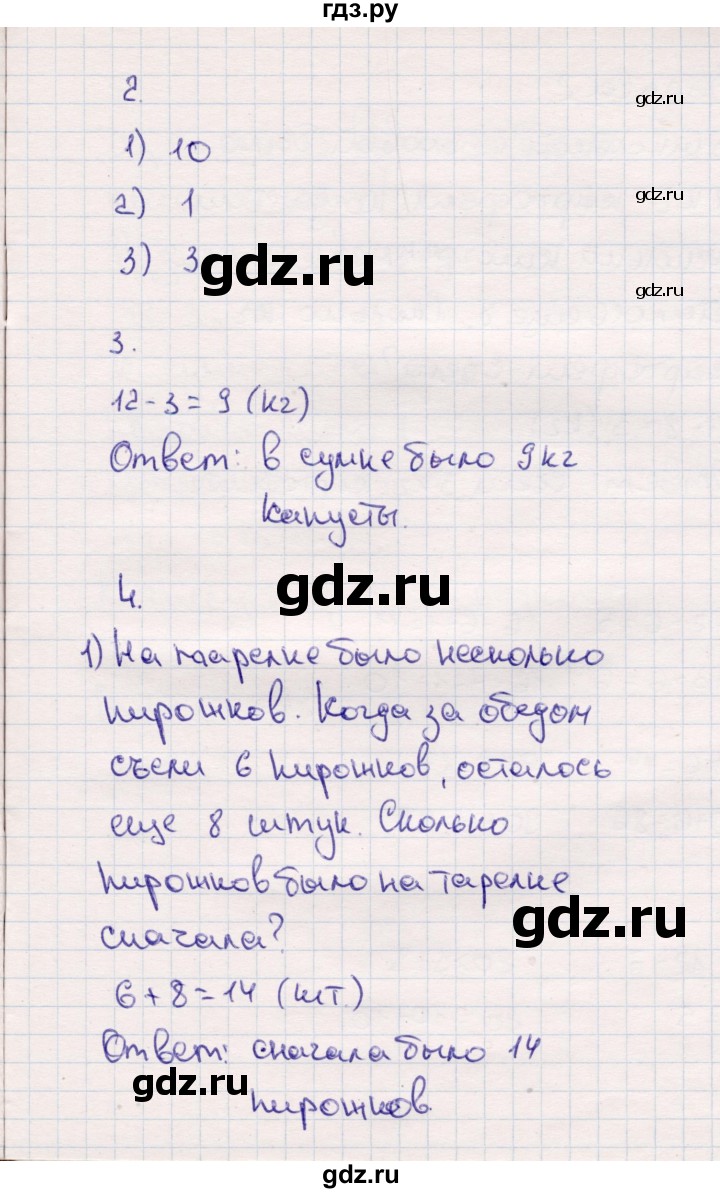 гдз.ру
2.
gdz.ru
1) 10
2) 1
gdz.ru
3) 3
gdz.ru
gdz.ru
3.
12-3=9 (кг)
Ответ: в сумке было 9 кг
капусты.
gdz.ru
4.
1) На тарелке было несколько
пирожков. Когда за обедом
съели 6 пирожков, осталось
еще 8 штук. Сколько
пирожков было на тарелке
gdz.ru
сначала?
6+8=14 (шт.)
Ответ: сначала было 14
gdz.ru
пирожков.
gdz.ru